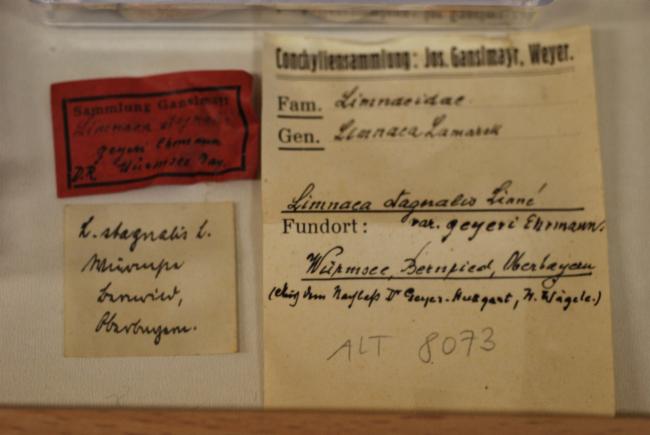 Sammlung Ganslmayr
Limnaea stagnalis
geyeri Ehrmann
D.R. Würmsee Bay.
L. stagnalis L.
Würmsee
Bernried,
Oberbayern.
Conchyliensammlung: Jos. Ganslmayr, Weyer.
Fam. Limnaeidae
Gen. Limnaea Lamarck
Limnaea stagnalis Linné
Fundort: var. geyeri Ehrmann.
Würmsee, Bernried, Oberbayern
(Aus dem Nachlaß Dr Geyer-Stuttgart,
ALT 8073